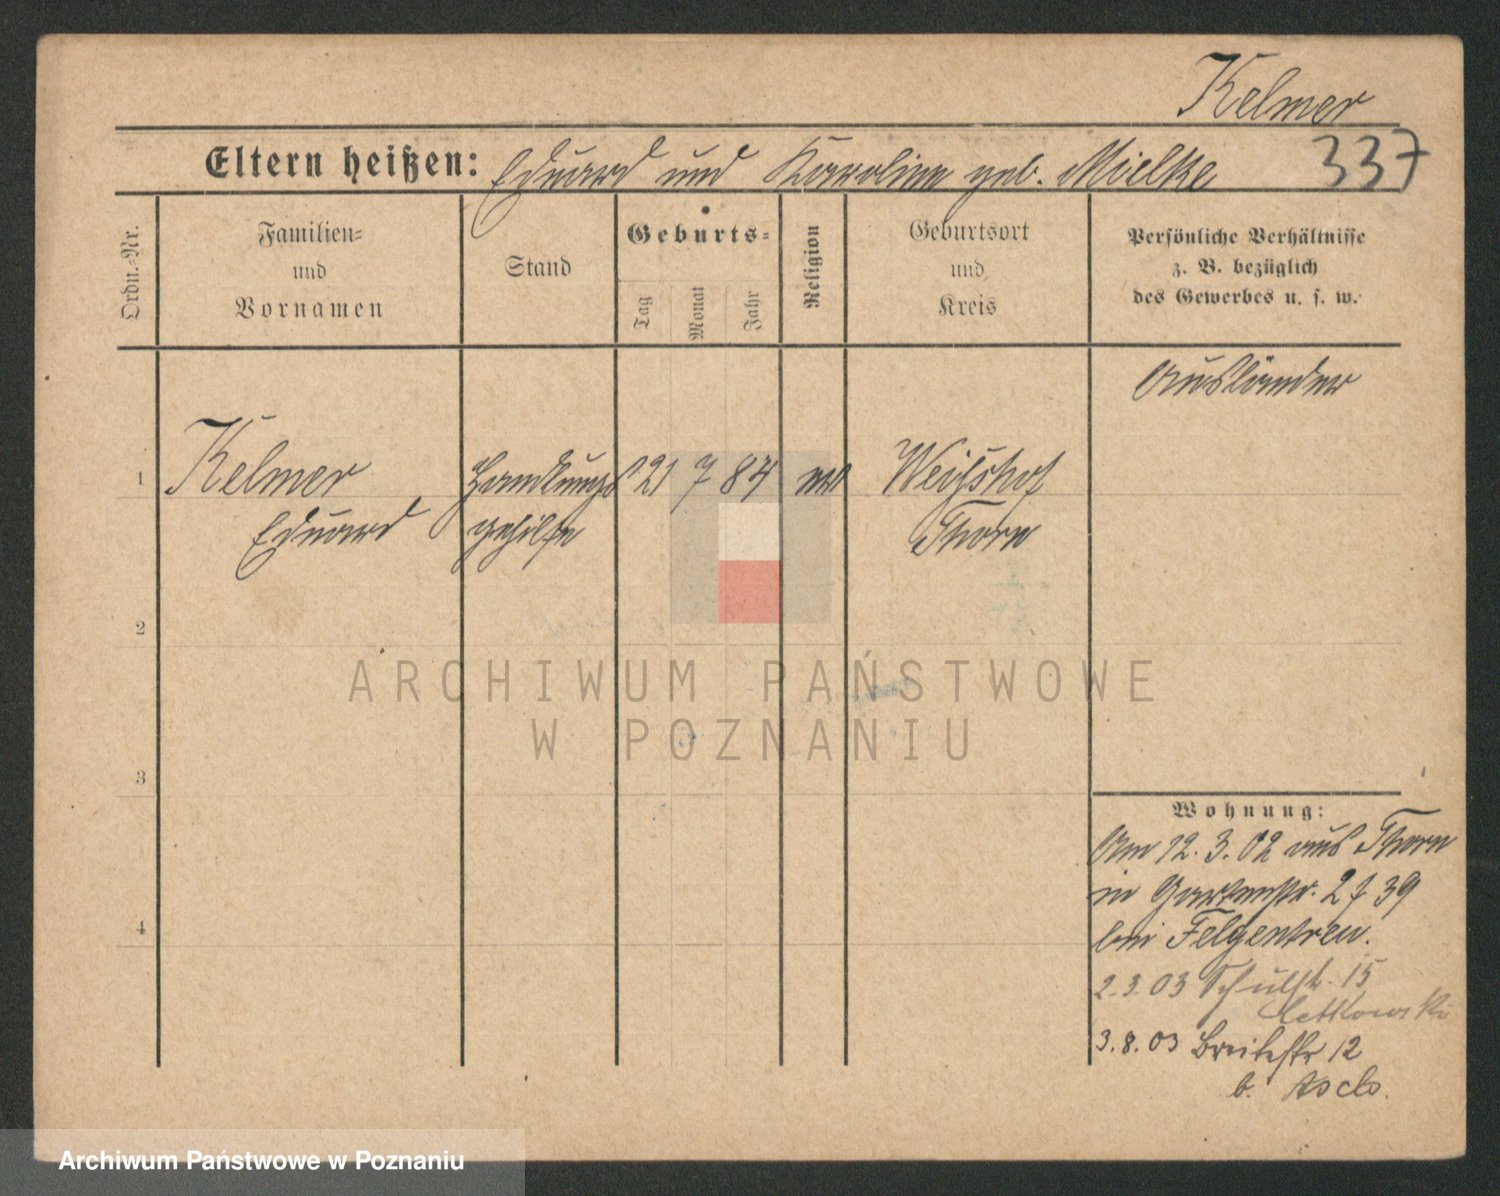 Kelmer
Eltern heißen: Eduard und Karoline geb. Mielke
337
Ordn.-Nr.
Familien-
und
Vornamen
Stand
Geburts-
Tag
Monat
Jahr
Religion
Geburtsort
und
Kreis
Persönliche Verhältnisse
z. B. bezüglich
des Gewerbes u. s. w.
Ausländer
1
Kelmer Handlungs 21 7 84 Weißhof
Eduard gehilfe Thorn
2
ARCHIWUM PAŃSTWOWE
W POZNANIU
3
Wohnung:
Am 12.3.02 aus Thorn
in Gartenstr. 2 39
bei Felgentreu.
4
2.3.03 Schulstr. 15
3.8.03 Breitestr 12
b.
Archiwum Państwowe w Poznaniu